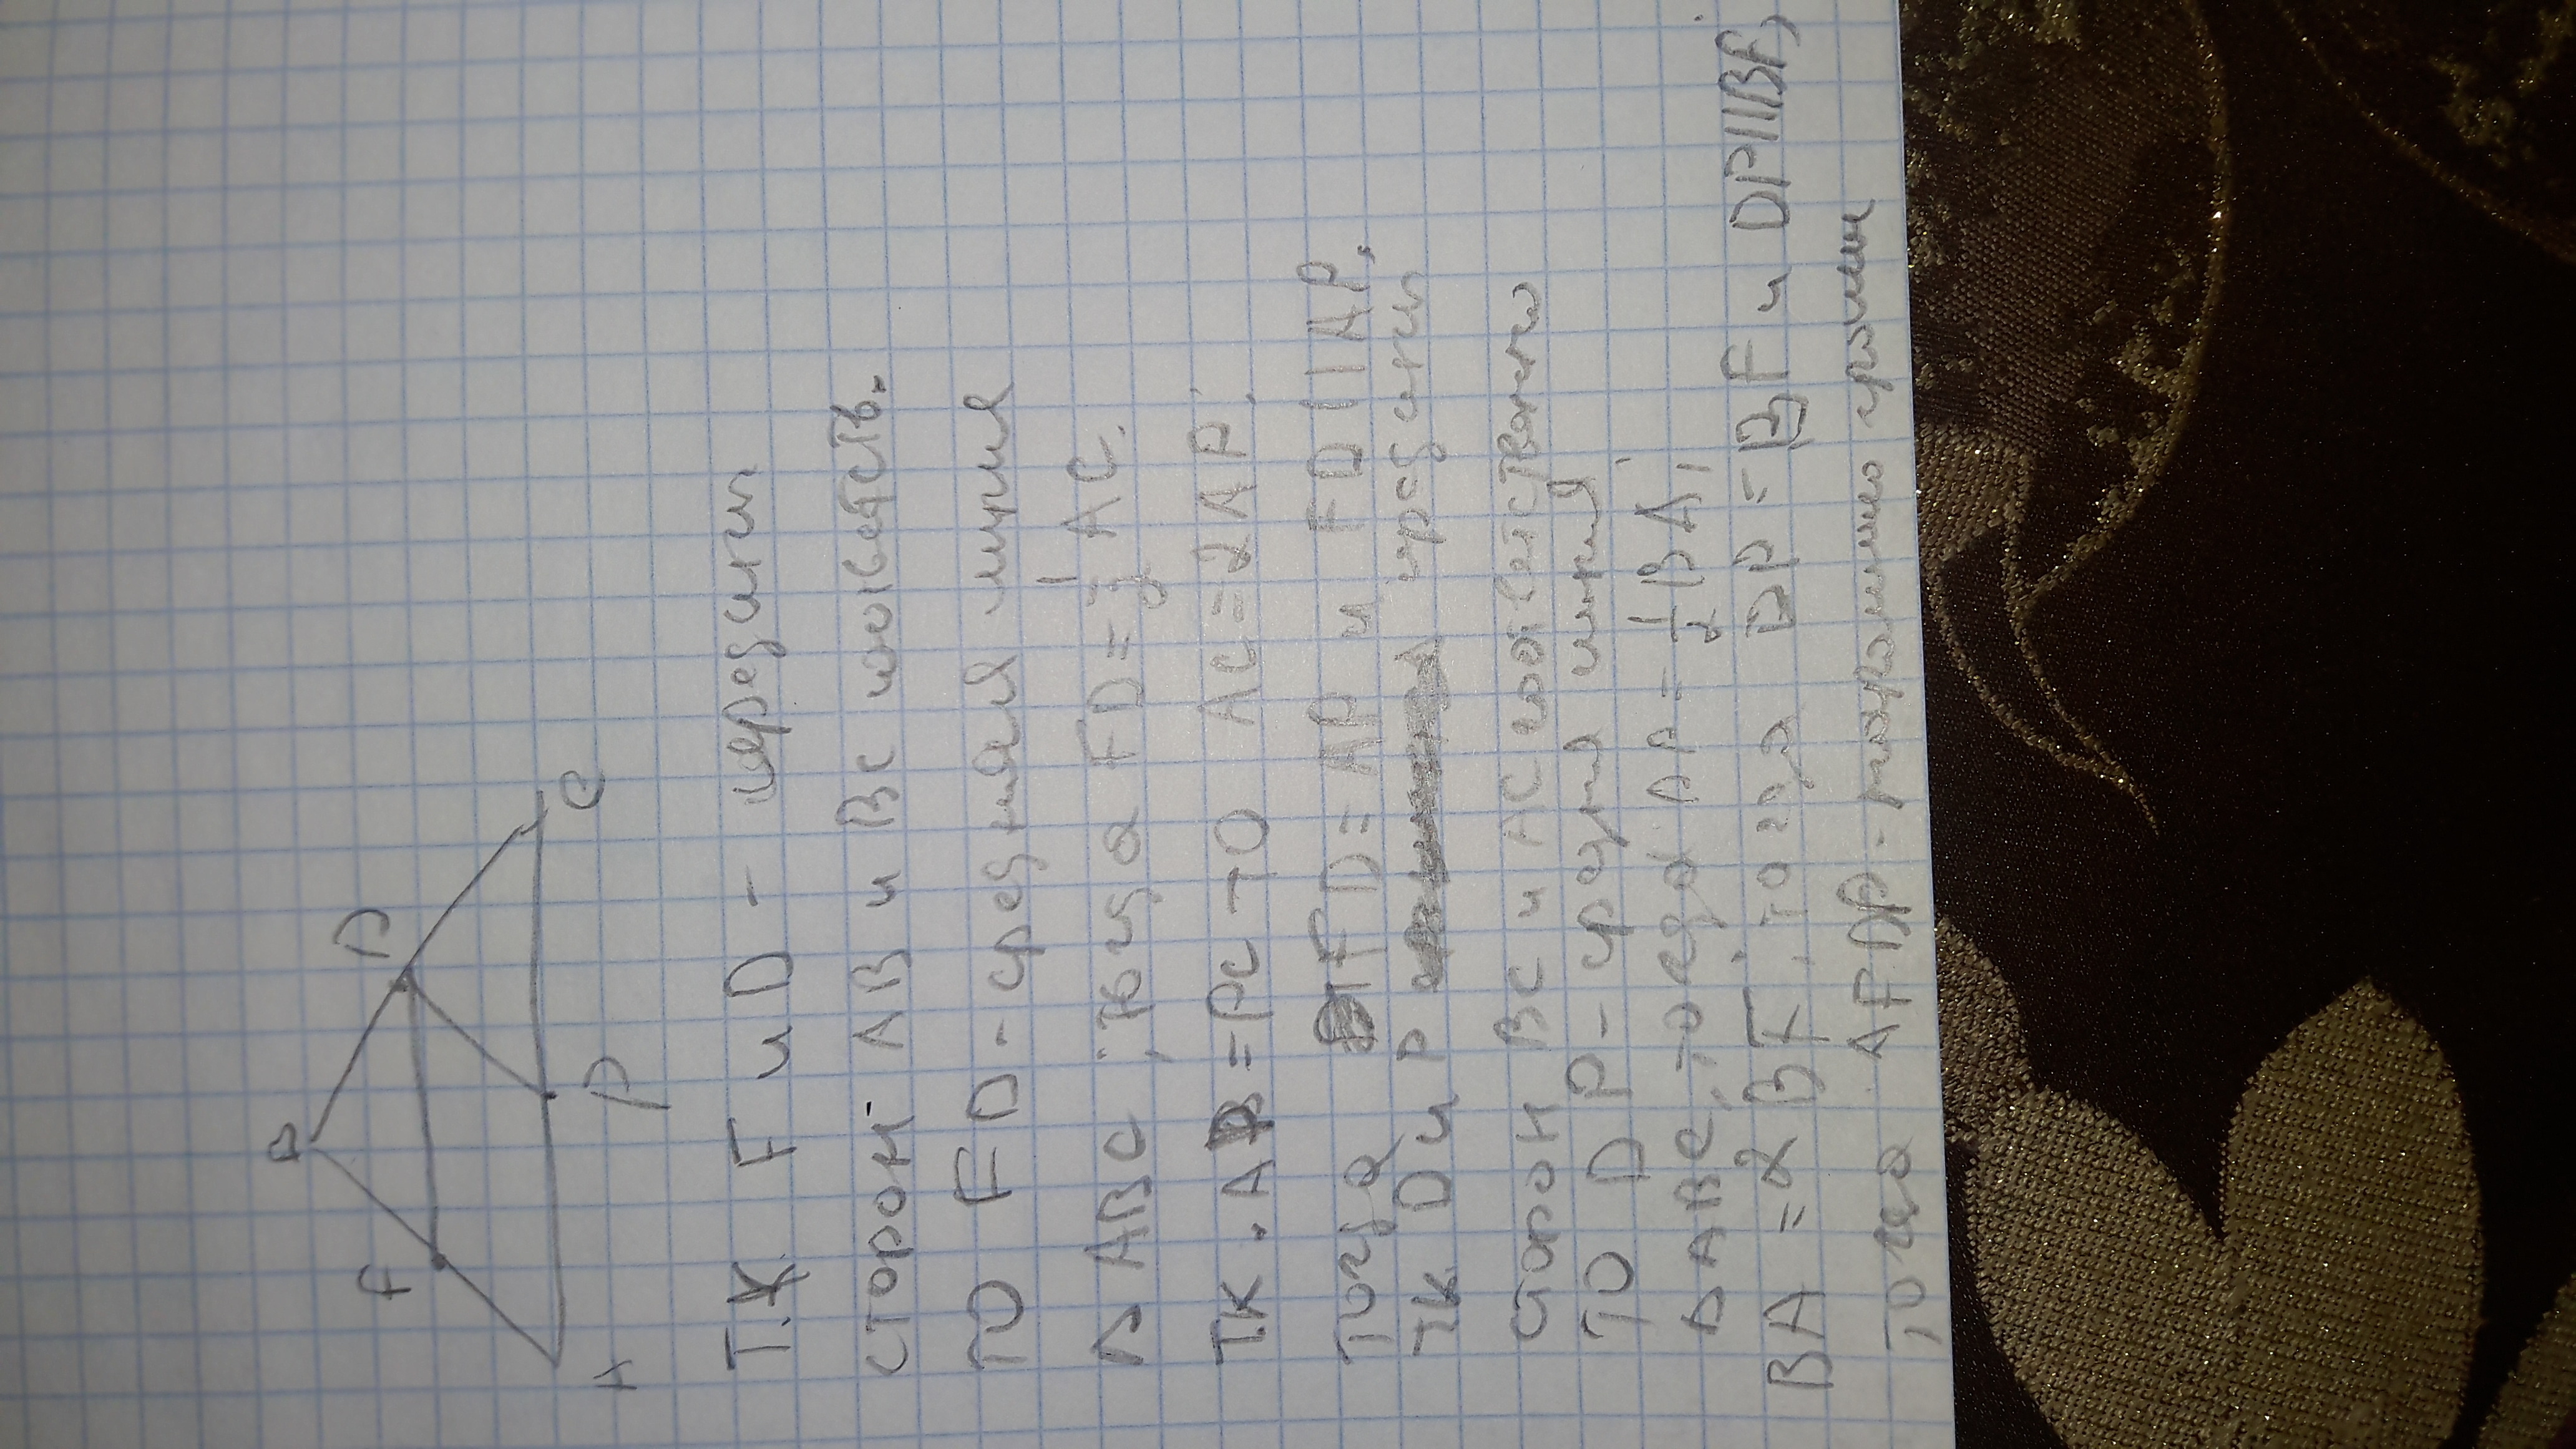 B
F
D
A
P
C
Т.К F и D - середины
сторон АВ и ВС соответств.
ТО FD - средняя линия
△ ABC, тогда FD = 1/2 AC.
Т.К. AP = PC то AC = 2AP.
тогда FD = AP и FD || AP.
тк D и P середины
сторон BC и AC соответственно
то DP - средняя линия
△ ABC, тогда DP = 1/2 BA,
BA = 2 BF, тогда DP = BF и DP || BF,
тогда AFDP -